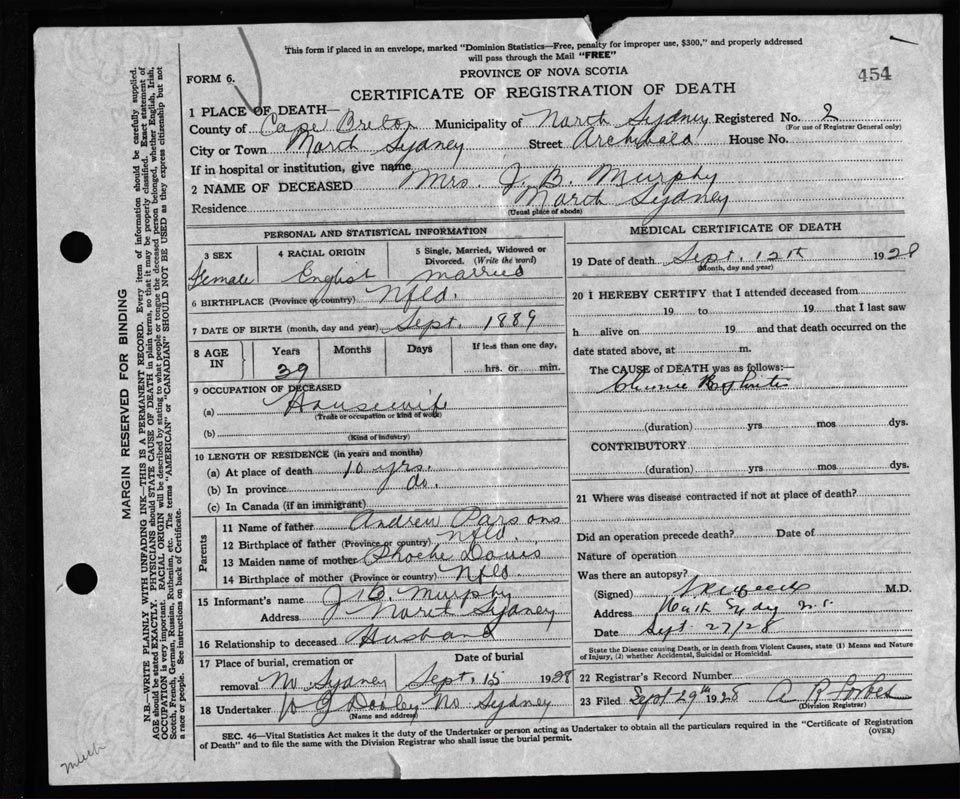 This form if placed in an envelope, marked "Dominion Statistics—Free, penalty for improper use, $300," and properly addressed
will pass through the Mail "FREE"
FORM 6.
PROVINCE OF NOVA SCOTIA
454
CERTIFICATE OF REGISTRATION OF DEATH
1 PLACE OF DEATH—
County of Cape Breton Municipality of North Sydney Registered No. 2
(For use of Registrar General only)
City or Town North Sydney Street Archibald House No.
If in hospital or institution, give name
2 NAME OF DECEASED Mrs. J. B. Murphy
Residence North Sydney
(Usual place of abode)
PERSONAL AND STATISTICAL INFORMATION
3 SEX
Female
4 RACIAL ORIGIN
English
5 Single, Married, Widowed or
Divorced. (Write the word)
Married
6 BIRTHPLACE (Province or country) Nfld.
7 DATE OF BIRTH (month, day and year) Sept. 1889
8 AGE IN
Years Months Days If less than one day,
39 hrs. or min.
9 OCCUPATION OF DECEASED
(a) Housewife
(Trade or occupation or kind of work)
(b)
(Kind of industry)
10 LENGTH OF RESIDENCE (in years and months)
(a) At place of death 10 yrs.
(b) In province do.
(c) In Canada (if an immigrant)
Parents
11 Name of father Andrew Parsons
12 Birthplace of father (Province or country) Nfld.
13 Maiden name of mother Phoebe Davis
14 Birthplace of mother (Province or country) Nfld.
15 Informant's name J B. Murphy
Address North Sydney
16 Relationship to deceased Husband
17 Place of burial, cremation or
removal No Sydney
Date of burial
Sept. 15 1928
18 Undertaker W J Dooley No Sydney
(Name and address)
MEDICAL CERTIFICATE OF DEATH
19 Date of death Sept. 12th 1928
(Month, day and year)
20 I HEREBY CERTIFY that I attended deceased from
19 to 19 that I last saw
h alive on 19 and that death occurred on
date stated above, at m.
The CAUSE OF DEATH was as follows:—
Chronic Nephritis
(duration) yrs mos dys.
CONTRIBUTORY
(duration) yrs mos dys.
21 Where was disease contracted if not at place of death?
Did an operation precede death? Date of
Nature of operation
Was there an autopsy?
(Signed) M.D.
Address North Sydney N.S.
Date Sept. 27/28
State the Disease causing Death, or in death from Violent Causes, state (1) Means and Nature
of Injury, (2) whether Accidental, Suicidal or Homicidal.
22 Registrar's Record Number
23 Filed Sept 29th 1928 A R Forbes
(Division Registrar)
SEC. 46—Vital Statistics Act makes it the duty of the Undertaker or person acting as Undertaker to obtain all the particulars required in the "Certificate of Registration
of Death" and to file the same with the Division Registrar who shall issue the burial permit.
(OVER)
MARGIN RESERVED FOR BINDING
N.B.—WRITE PLAINLY WITH UNFADING INK—THIS IS A PERMANENT RECORD. Every item of information should be carefully supplied.
AGE should be stated EXACTLY. PHYSICIANS should STATE CAUSE OF DEATH in plain terms, so that it may be properly classified. Exact statement of
OCCUPATION is very important. RACIAL ORIGIN will be described by stating to what people or tongue the deceased person belonged, whether English, Irish,
Scotch, French, German, Russian, Ruthenian, etc. The terms "AMERICAN" or "CANADIAN" SHOULD NOT BE USED as they express citizenship but not
a race or people. See instructions on back of Certificate.